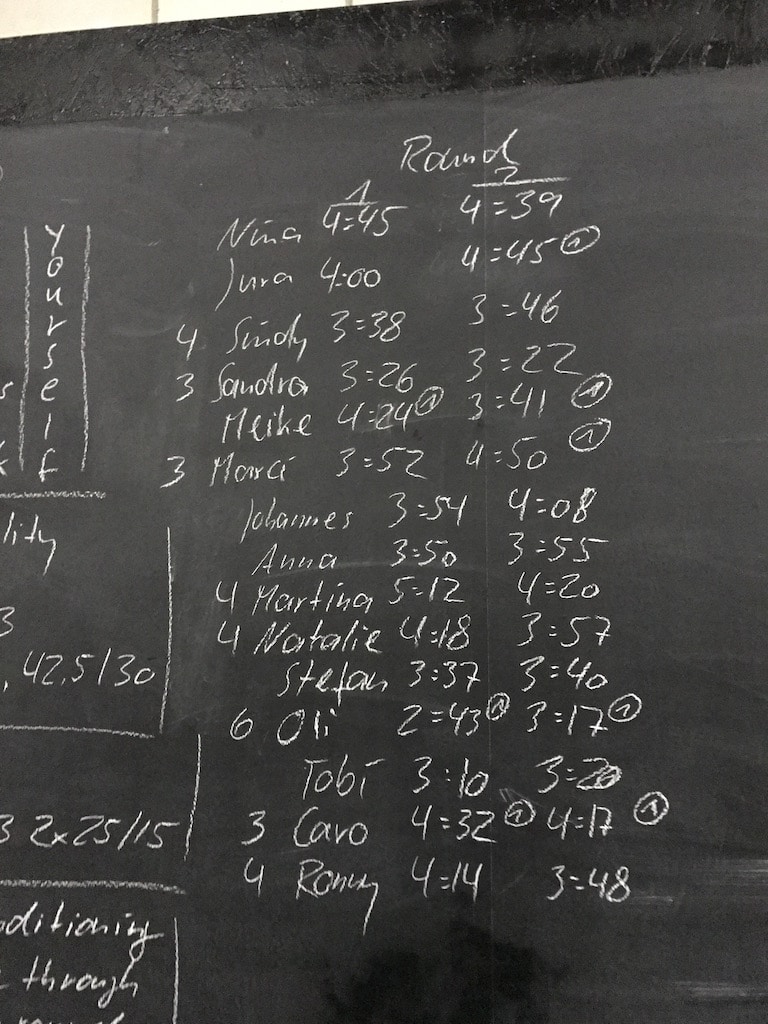 Round
1 2
Nina 4=45 4=39
Jura 4:00 4=45 ①
4 Sindy 3=38 3=46
3 Sandra 3=26 3=22
Meike 4=24 ① 3=41 ①
3 Marci 3=52 4=50 ①
Johannes 3=54 4=08
Anna 3=50 3=55
4 Martina 5=12 4=20
4 Natalie 4:18 3=57
Stefan 3:37 3:40
6 Oli 2=43 ① 3=17 ①
Tobi 3:10 3=20
3 Caro 4=32 ① 4=17 ①
4 Ronny 4=14 3=48
y
o
u
r
s
e
l
f
lity
3
, 42,5/30
3 2x25/15
nditioning
through